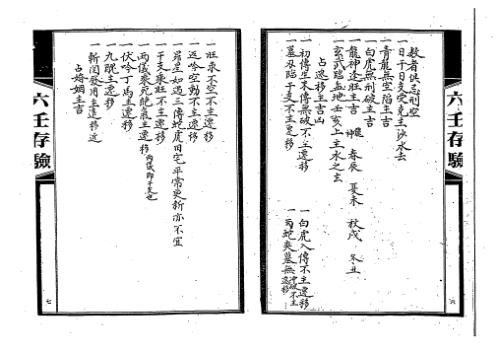 六壬存驗
數者俱忌刑空
一日干日支受克主沙水去
一青龍無空陷主吉
一白虎無刑破主吉
一龍神逢旺主吉 春辰 夏未 秋戌 冬丑
一玄武臨地壬亥上主水之玄
占遷移主吉凶
一初傳生末傳無破不主遷移
一墓刃臨干支不主遷移
一白虎入傳不主遷移
一兩蛇夾墓無冲破不主遷移
六
一旺來不空不主遷移
一返吟空動不主遷移
一若坐如遇三傳蛇虎田宅平常更新亦不宜
一干支乘旺不主遷移
一兩儀乘死絶氣主遷移 兩儀即干支也
一伏吟丁馬主遷移
一九醜主遷移
一斬關發用主遷移逆
占婚姻主吉
六壬存驗
七